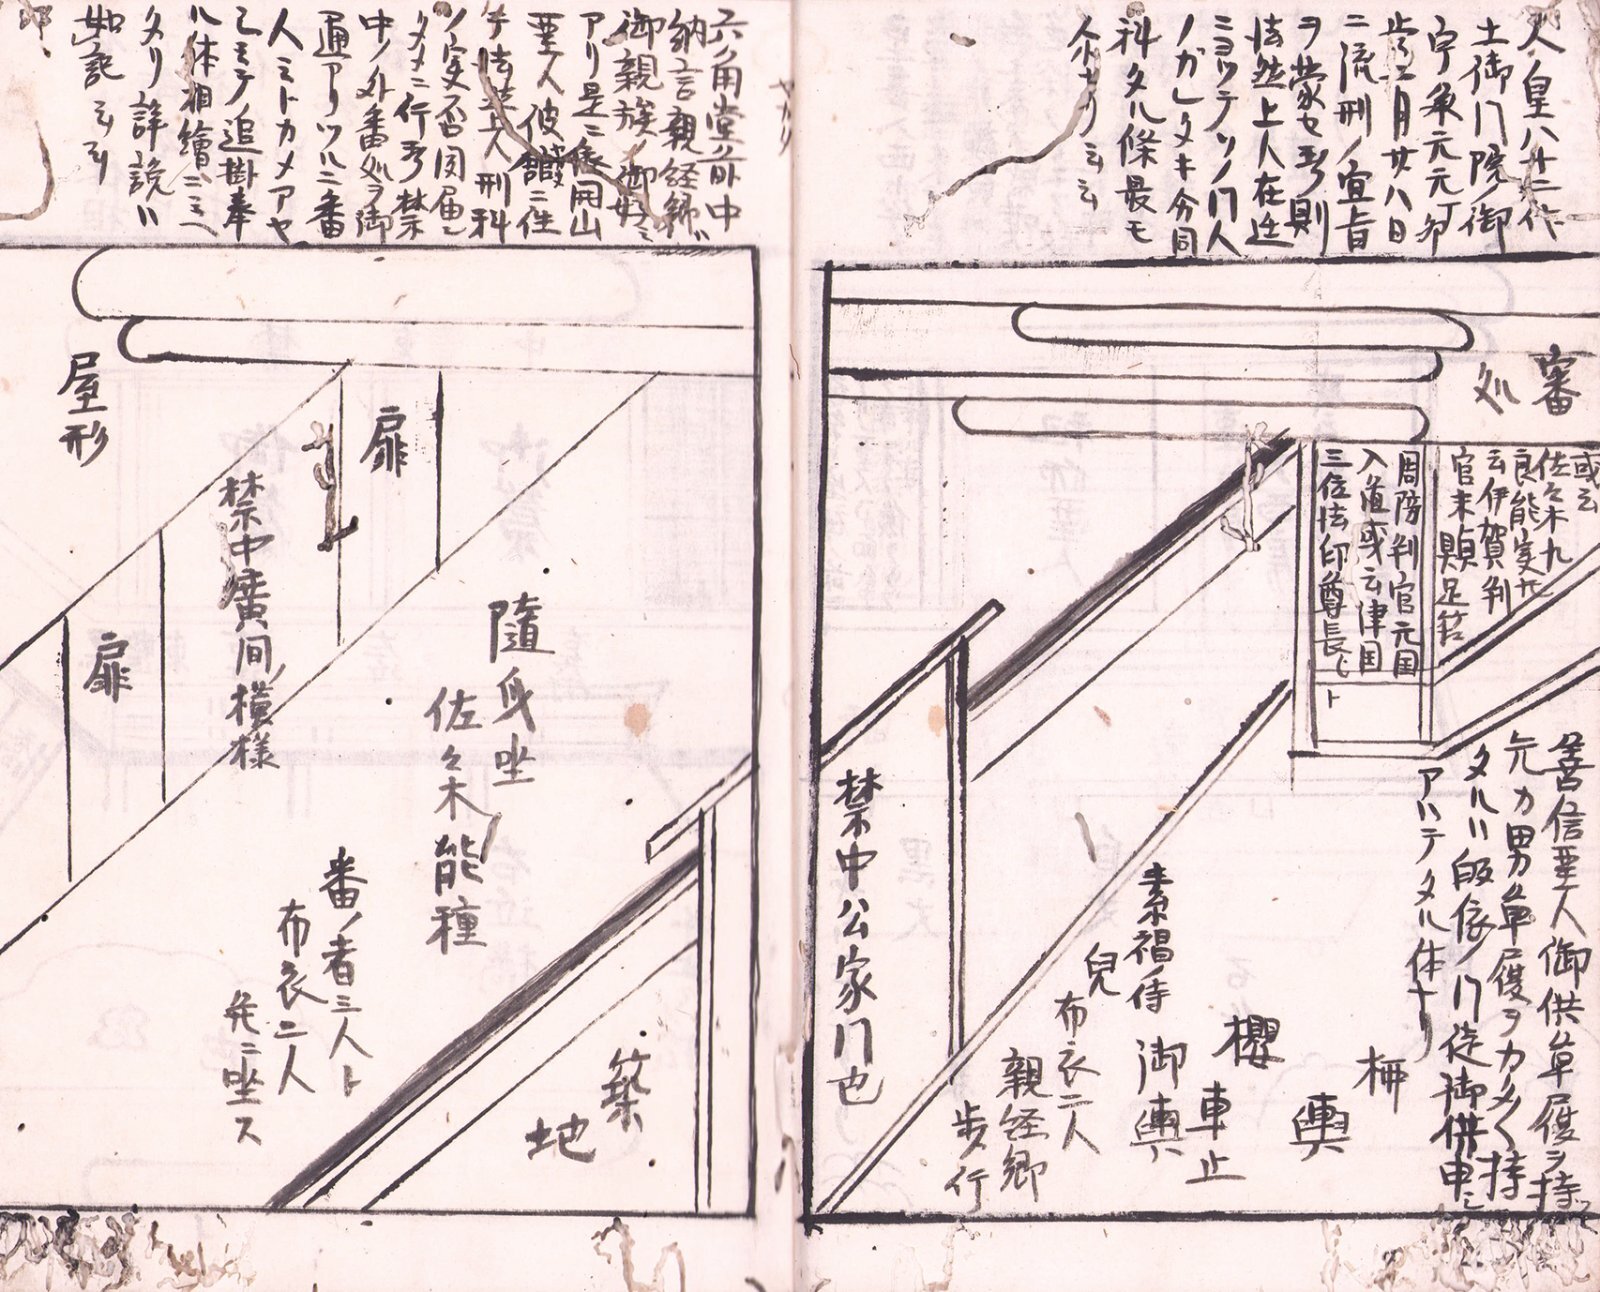 人皇八十二代
土御門院ノ御
宇承元元丁卯
歳二月廿八日
ニ流刑ノ宣旨
ヲ蒙セ玉フ則
法然上人在迁
ミヨッテソノ門人
ノカレタキ今同
科タル條最モ
尒ナリ云云
審
処
或云
佐々木九
良能実
云伊賀判
官末顕足
周防判官元国
入道或云津国
三位法印尊長ヒト
善信聖人御供草履ヲ持
元カ男草履ヲカタク持
タルハ皈依ノ門徒御供申
アハテタル体ナリ
栖
輿
櫻
車止
御輿
素裼ノ侍
兒
布衣二人
親経郷
歩行
禁中公家門也
六角堂前中
納言親経卿ハ
御親族ノ御好ミ
アリ是ニ依開山
聖人彼館ニ住
テ法然上人刑科
ノ実否図届ン
タメニ行玉フ禁
中ノ外番処ヲ御
通アリツルニ番
人ミトカメアヤ
シミテ追掛奉
ル体相繪ニミヘ
タリ詳説ハ
如記云云
隨身坐
佐々木能種
番ノ者三人ト
布衣二人
先ニ坐ス
築
地
扉
禁中廣间ノ模様
扉
屋形